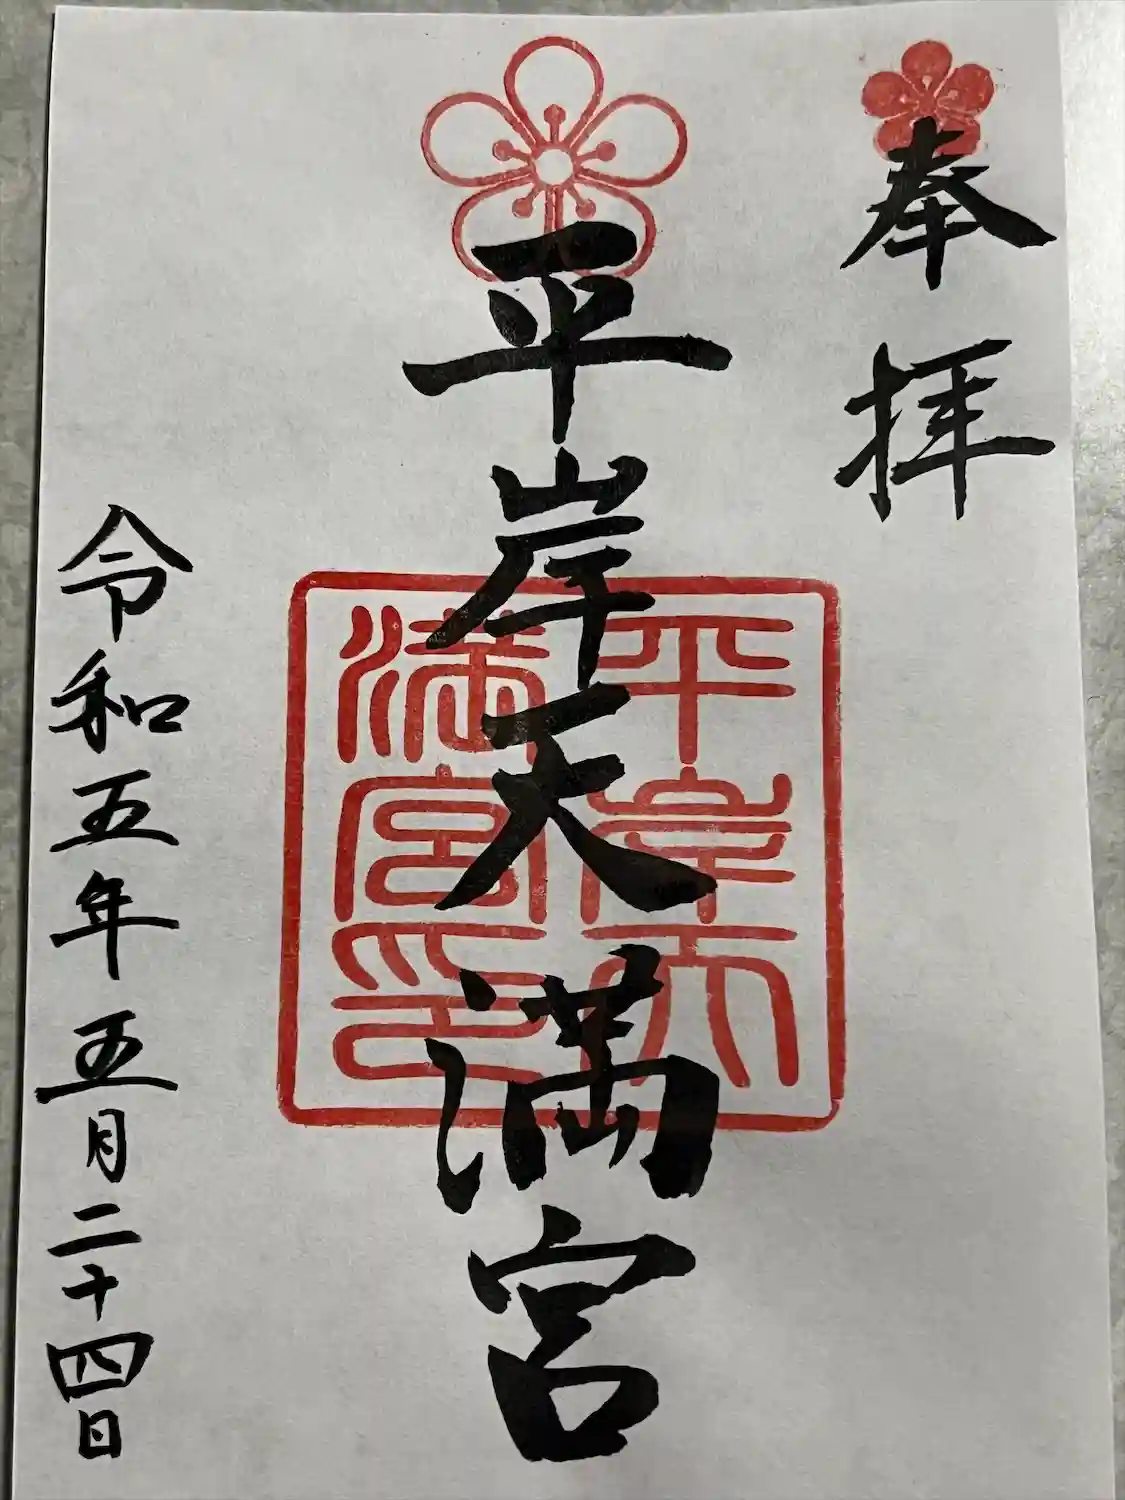 奉拝
平岸天満宮
平岸天
満宮印
令和五年五月二十四日